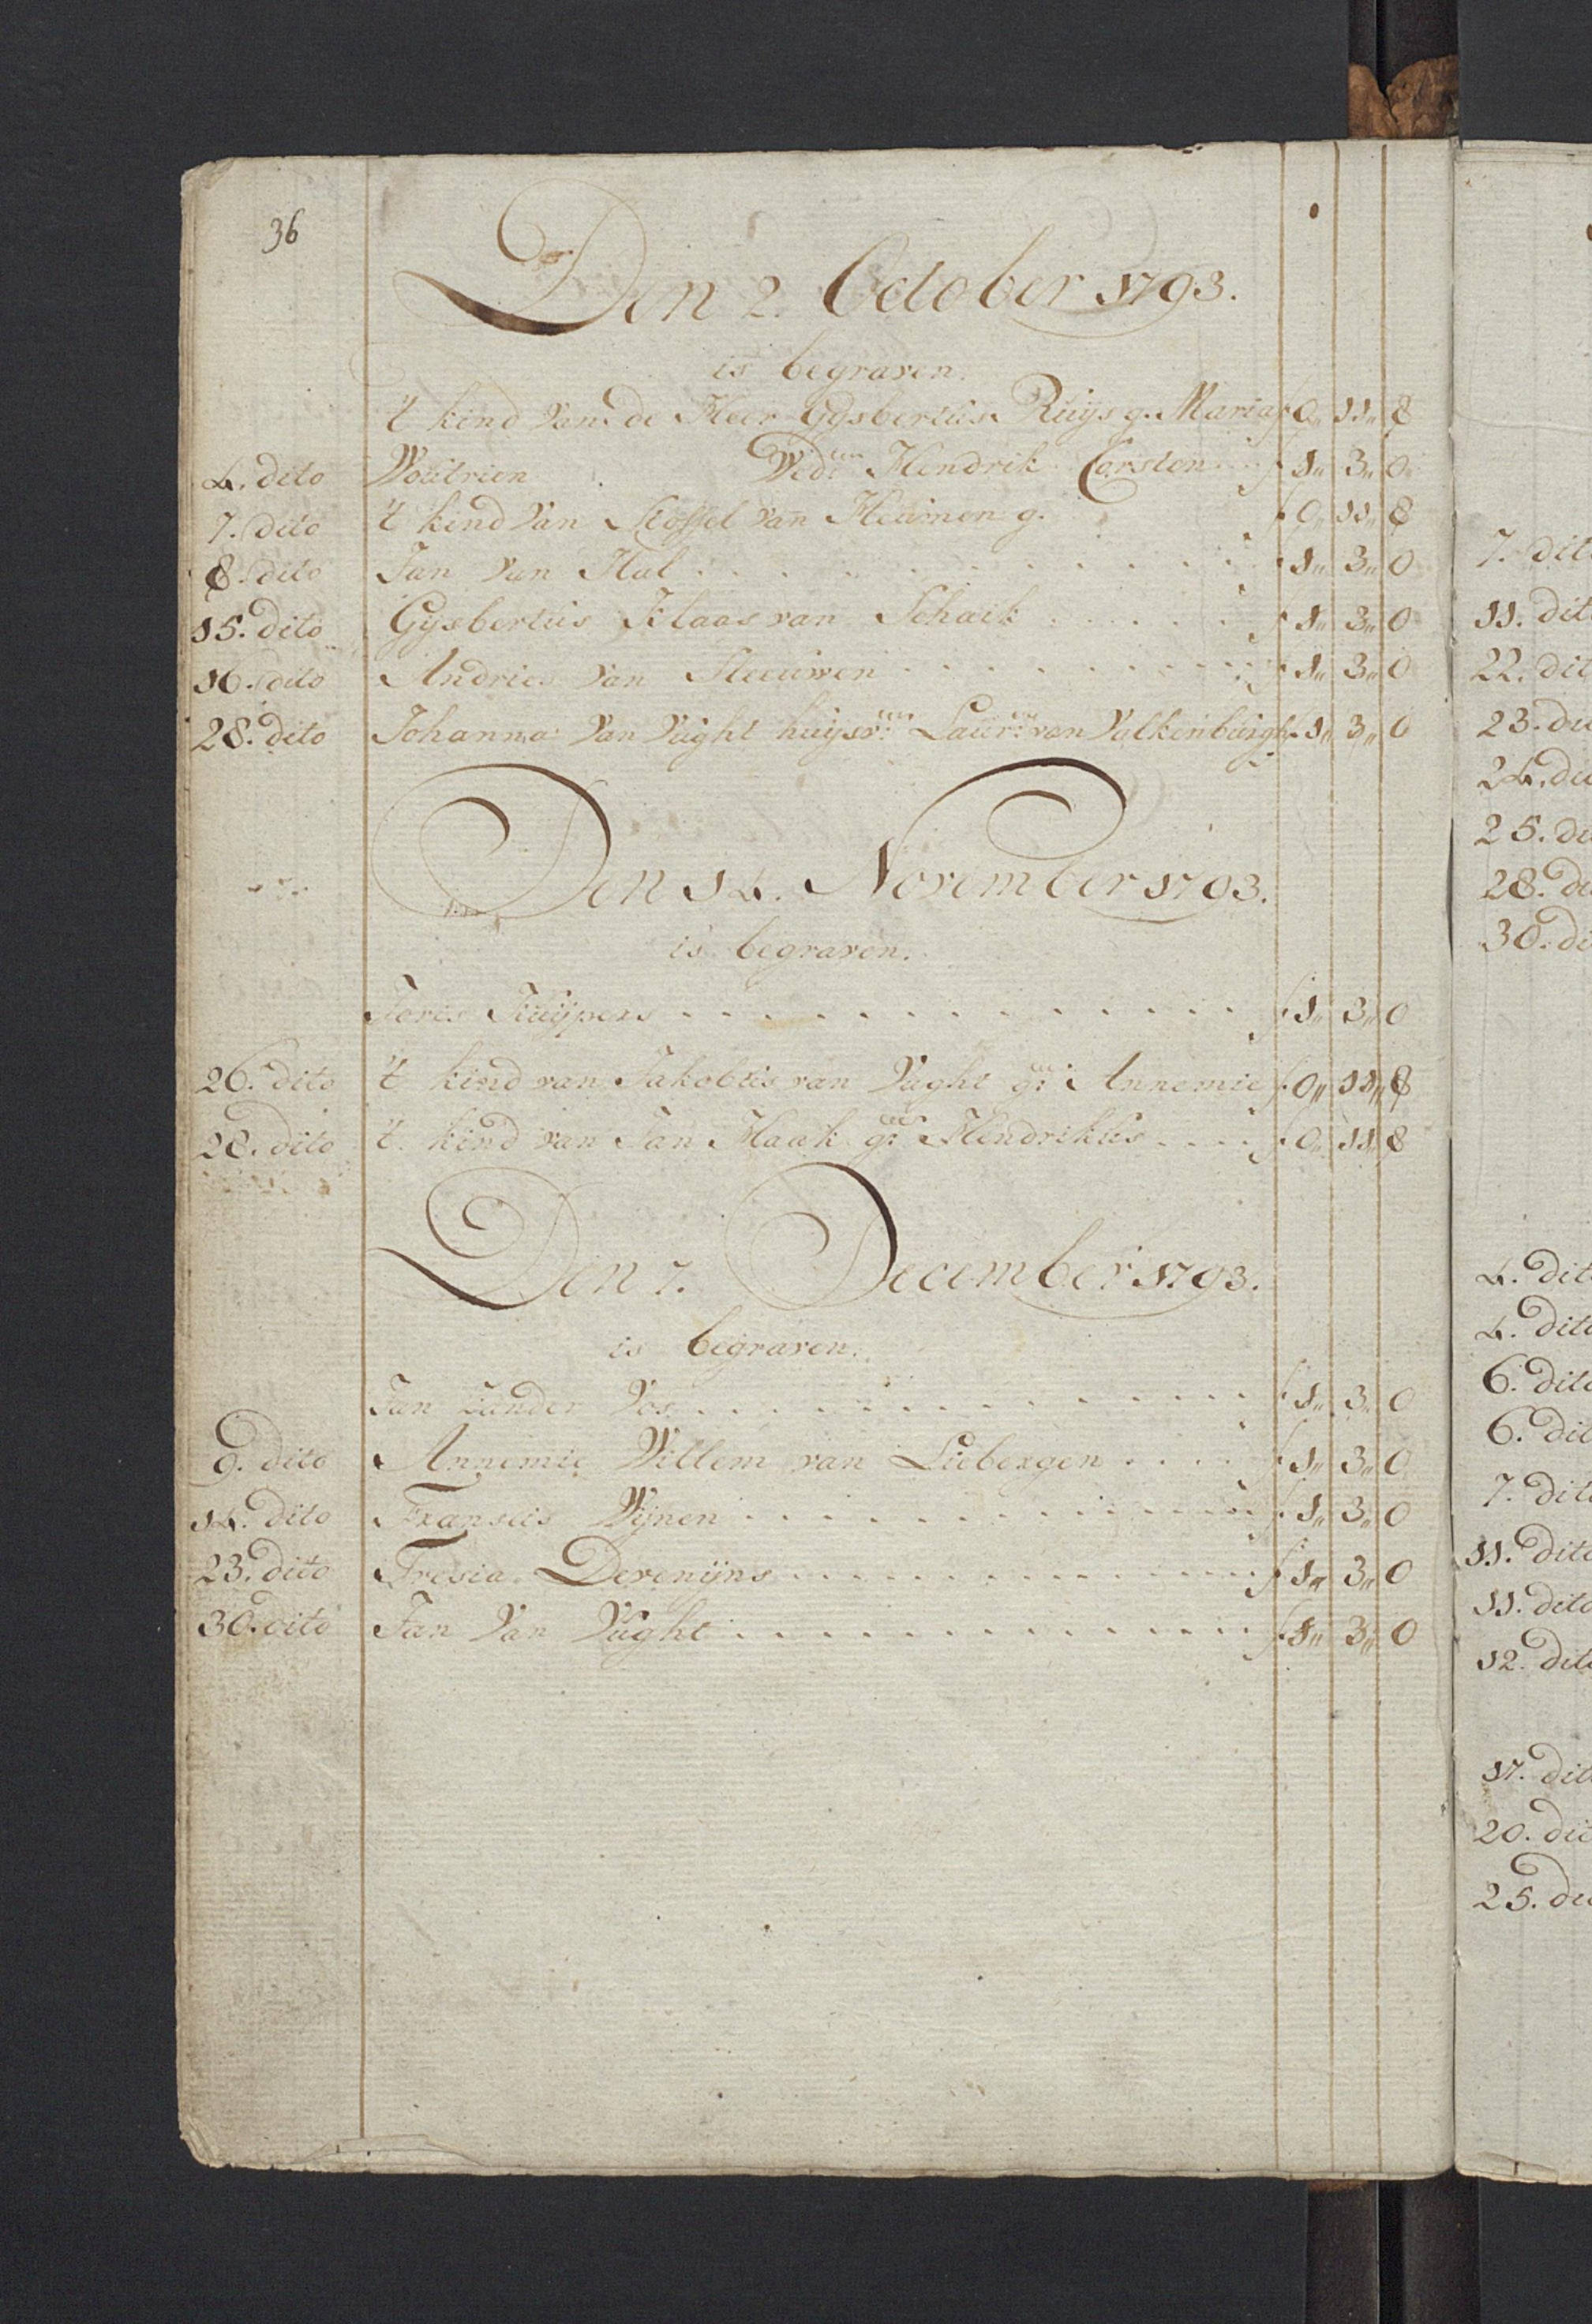 36
Den 2. October 1793.
is begraven.
't kind van de Heer Gysbertus Ruijs g. Maria f 0,, 11,, 8
4. dito Woutrien Wede Hendrik Corsten f 1,, 3,, 0
7. dito 't kind van Stoffel van Heumen g. f 0,, 11,, 8
8. dito Jan van Hal f 1,, 3,, 0
15. dito Gysbertus Klaas van Schaik f 1,, 3,, 0
16. dito Andries van Sleeuwen f 1,, 3,, 0
28. dito Johanna van Vught huijsv: Laur: van Valkenburgh f 1,, 3,, 0
Den 14. November 1793.
is begraven.
Joris Kuijpers f 1,, 3,, 0
26. dito 't kind van Jakobus van Vught g: Annemie f 0,, 11,, 8
28. dito 't kind van Jan Haak g: Hendrikus f 0,, 11,, 8
Den 7. December 1793.
is begraven.
Jan Sander Vos f 1,, 3,, 0
9. dito Annemie Willem van Liebergen f 1,, 3,, 0
14. dito Fransus Wijnen f 1,, 3,, 0
23. dito Fresia Derenijns f 1,, 3,, 0
30. dito Jan van Vught f 1,, 3,, 0
7. dit
11. dit
22. dit
23. di
24. di
25. di
28. di
30. di
4. dit
4. dito
6. dito
6. dit
7. dito
11. dito
11. dito
12. dito
17. dit
20. dit
25. di